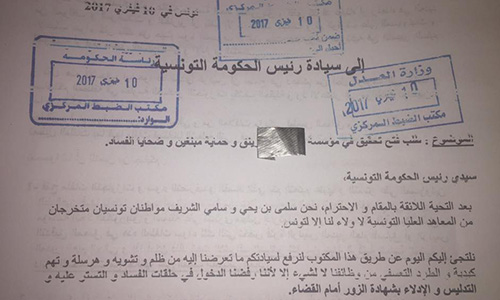 تونس في 10 فيفري 2017
مكتب الضبط المركزي
10 فيفري 2017
إلى سيادة رئيس الحكومة التونسية
رئاسة الحكومة
10 فيفري 2017
مكتب الضبط المركزي
الوارد:
وزارة العدل
10 فيفري 2017
مكتب الضبط المركزي
الموضوع: طلب فتح تحقيق في مؤسسة و حماية مبلغين و ضحايا الفساد.
سيدي رئيس الحكومة التونسية،
بعد التحية اللائقة بالمقام و الاحترام، نحن سلمى بن يحي و سامي الشريف مواطنان تونسيان متخرجان
من المعاهد العليا التونسية لا ولاء لنا إلا لتونس.
نلتجئ إليكم اليوم عن طريق هذا المكتوب لنرفع لسيادتكم ما تعرضنا إليه من ظلم و تشويه و هرسلة و تهم
كيدية و الطرد التعسفي من وظائفنا لا لشيء إلا لأننا رفضنا الدخول في حلقات الفساد و التستر عليه و
التدليس و الإدلاء بشهادة الزور أمام القضاء.